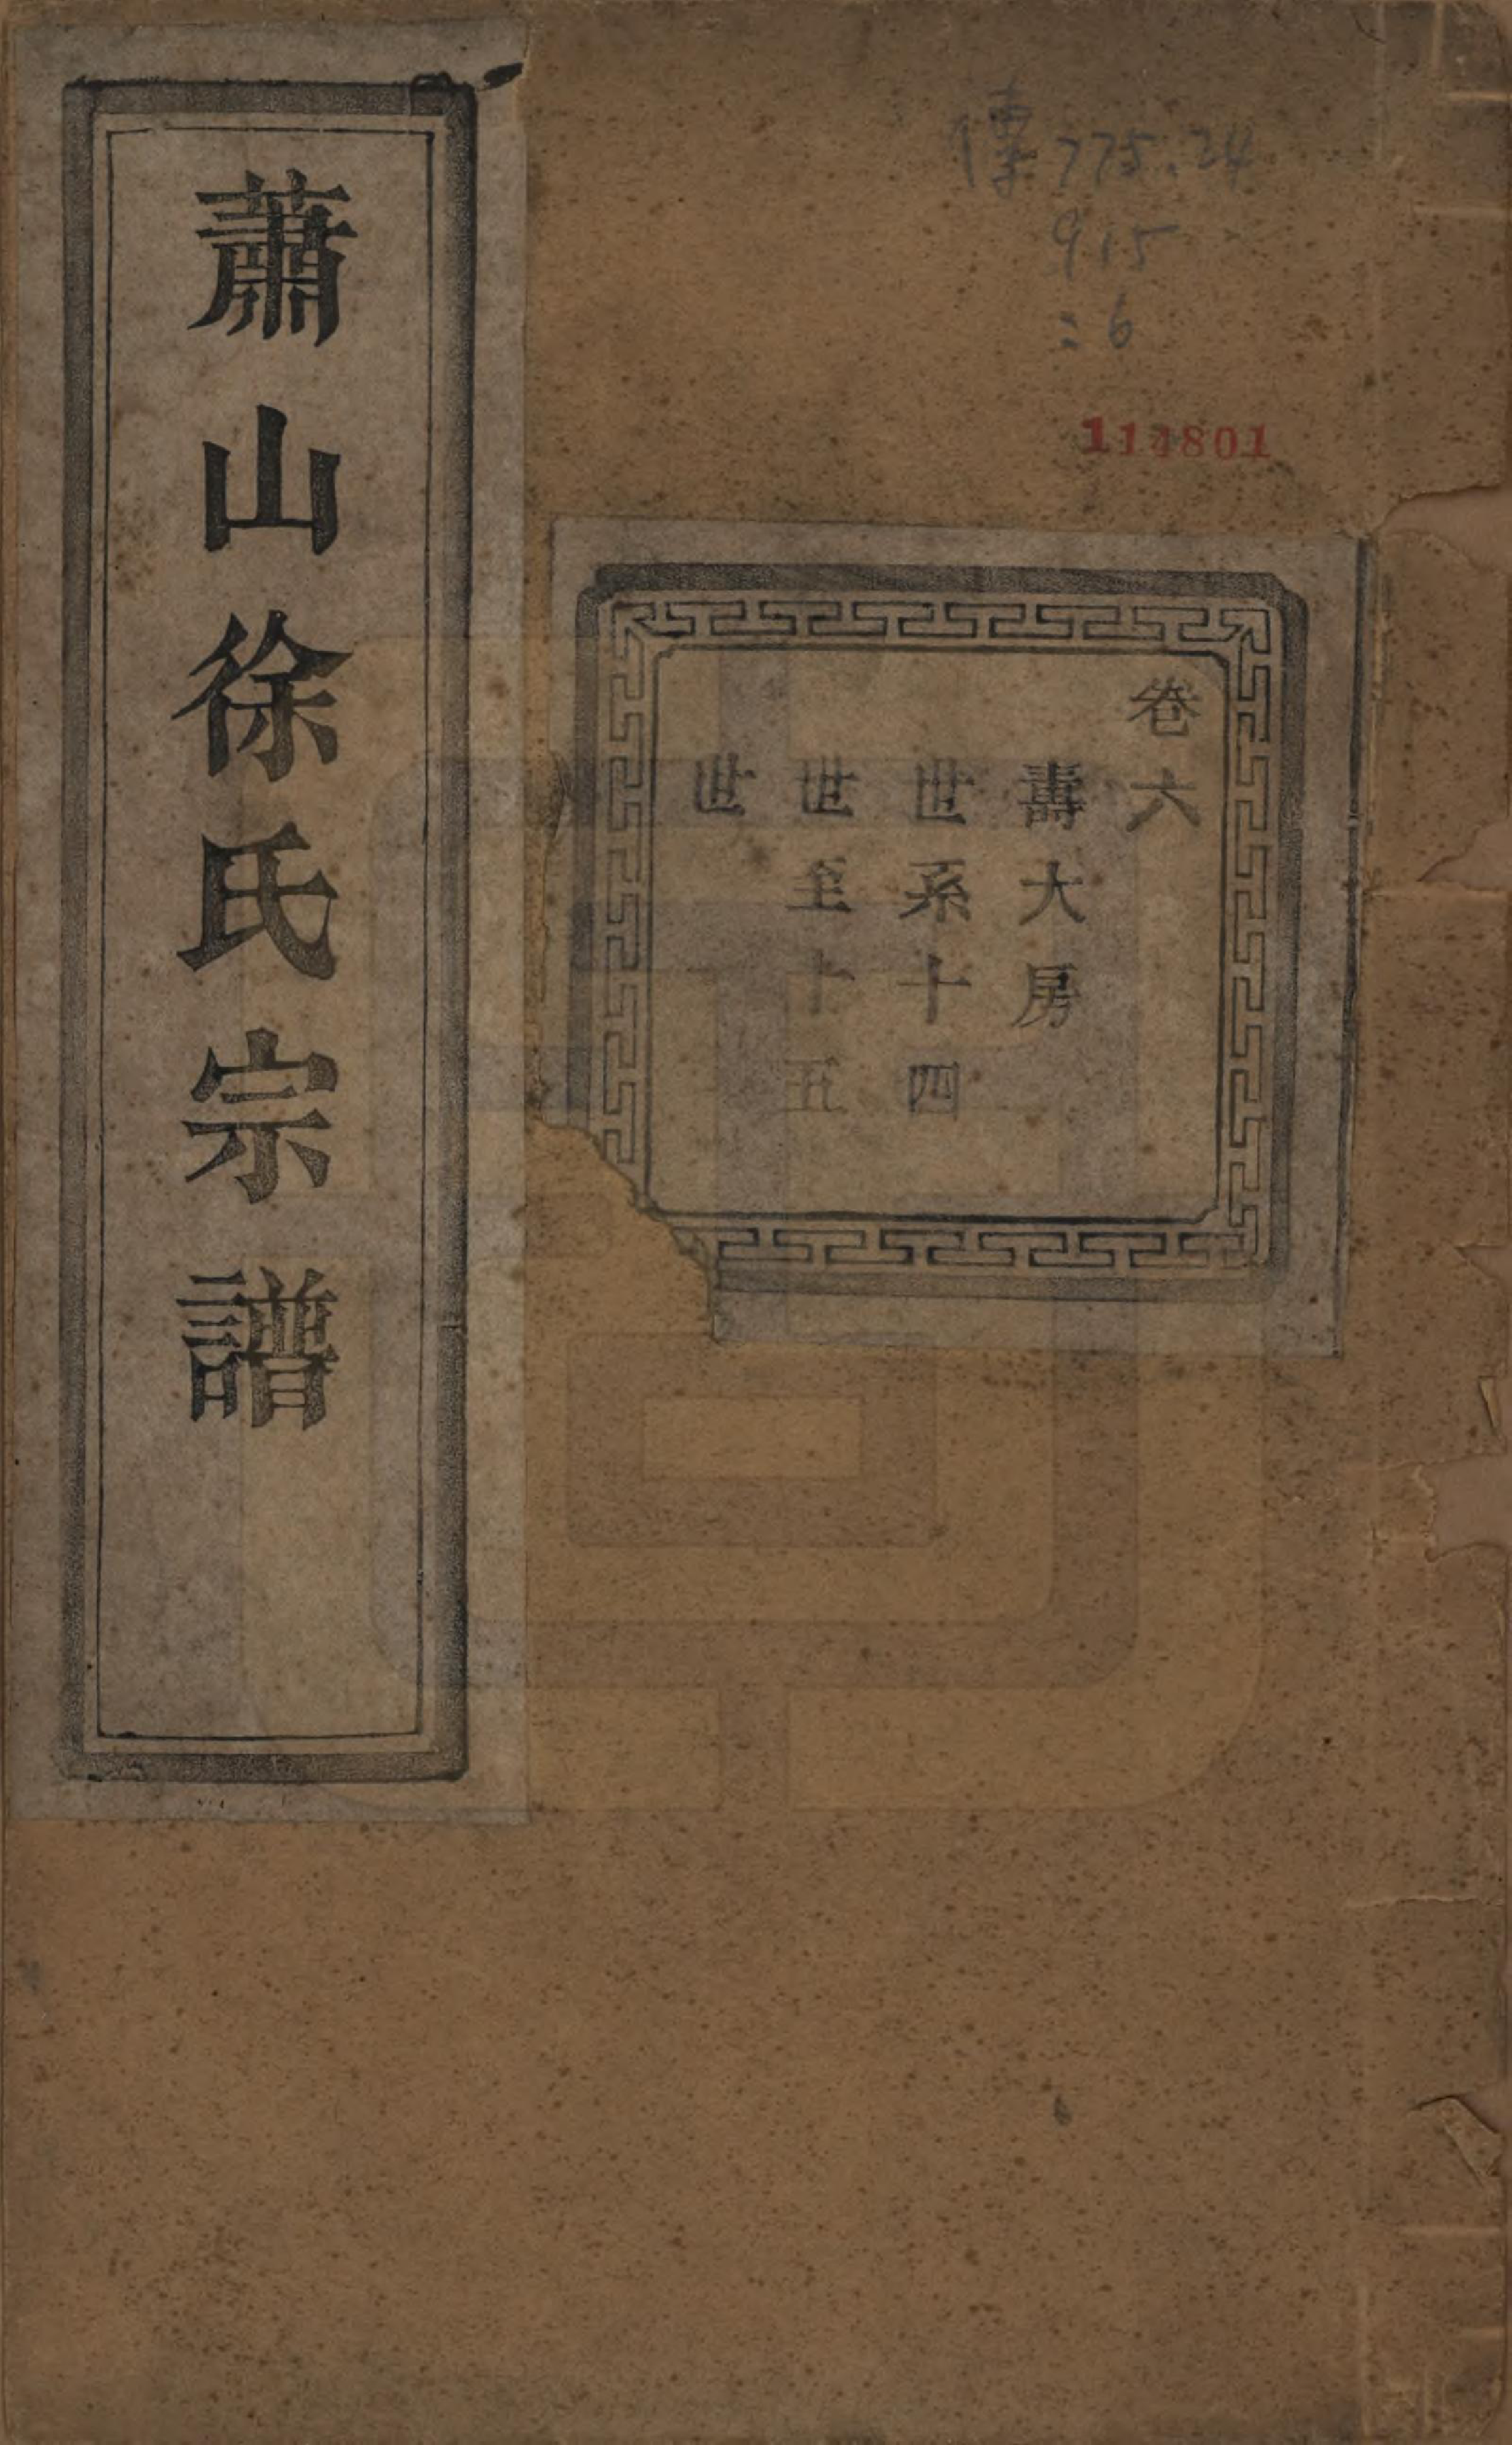 傳775.24
915
:6
114801
卷六
壽大房
世系十四
世至十五
世
蕭山徐氏宗譜